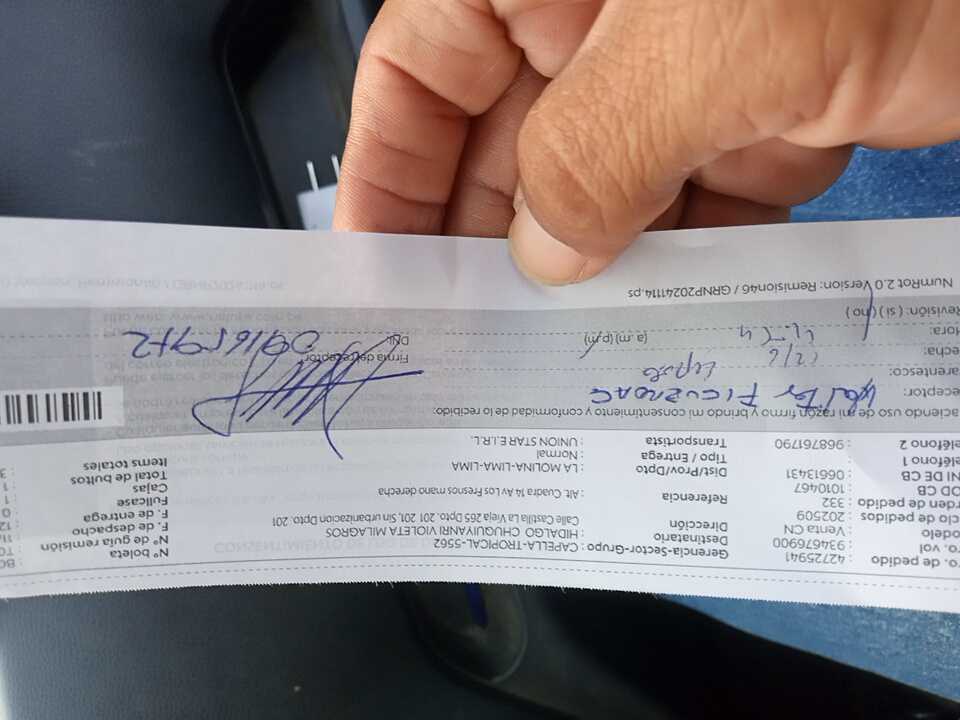 ro. de pedido : 42725941
ro. vol : 934676900
odelo : Venta CN
cio de pedidos : 202509
rden de pedido : 332
OD CB : 1010467
NI DE CB : 06613431
eléfono 1 :
eléfono 2 : 968761790
Gerencia-Sector-Grupo : CAPELLA-TROPICAL-5562
Destinatario : HIDALGO CHUQUIYANRI VIOLETA MILAGROS
Dirección : Calle Castilla La Vieja 265 Dpto. 201, 201, Sin urbanizacion Dpto. 201
Referencia : Alt. Cuadra 14 Av Los Fresnos mano derecho
Dist/Prov/Dpto : LA MOLINA-LIMA-LIMA
Tipo / Entrega : Normal
Transportista : UNION STAR E.I.R.L.
N° boleta : BO
N° de guía remisión : TO
F. de despacho : 11
F. de entrega : 12
Fullcase : 0
Cajas : 1
Total de bultos : 1
Items totales : 3
aciendo uso de mi razón firmo y brindo mi consentimiento y conformidad de lo recibido:
eceptor: Walter FIGUEROA C
arentesco: Esposo
echa: 12/6
Hora: (a.m) (p.m)
Revisión: ( si ) ( no )
Firma del receptor
DNI:
NumRot.2.0 Version: Remision46 / GRNP20241114.ps